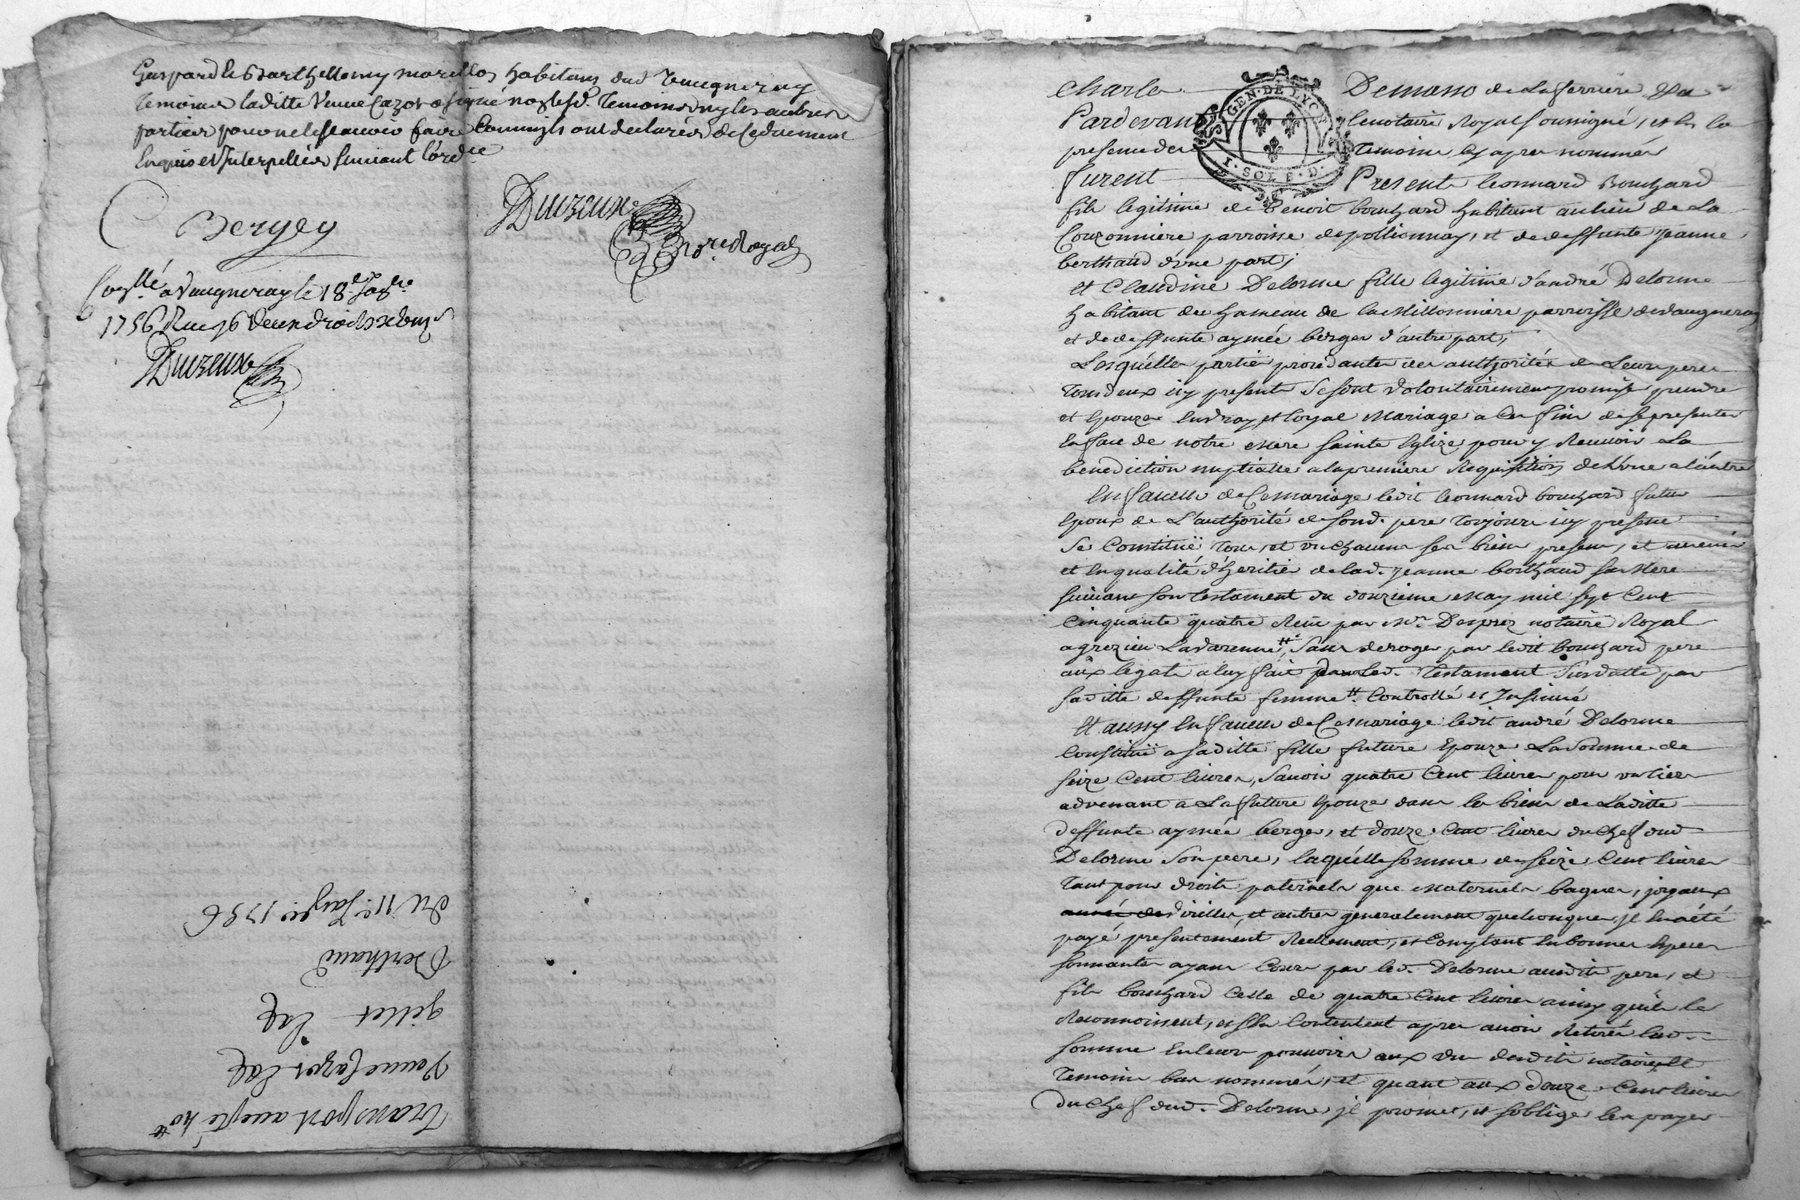 Gaspard & Barthellemy morellos habitans dud Vaugneray
Temoins laditte Veuve Cazot a signé non led. Temoins ny les autres
parties pour ne le scavoir faire Comm'ils ont declarés de Ce duement
Enquis et Interpellés suivant l'ordce
Bergey
Duvzeux
Nore. Royal
Conllé a Vaugneray le 18e.
1756 Reçu
Duvzeux
du 11e. 1756
Berthaud
gillet
Veuve Cazot
Transport accepté 40tt
Charle Demano de La ferriere
GEN. DE LYON
I. SOL. 8. D.
Pardevant le notaire Royal soussigné, et En la
presence des Temoins Cy apres nommés
furent Presents leonnard Bouchard
fils legitime de Benoit bouchard habitant au lieu de La
Couzonniere parroisse de pollionnay, et de deffunte jeanne
berthaud d'une part;
Et Claudine Delorme fille legitime d'andré Delorme
habitant du hameau de la Millonniere parroisse de vaugneray
et de deffunte aymée berger d'autre part;
Lesquelles parties procedantes des authorités de Leurs peres
Tous deux icy presents se sont Volontairement promis prendre
et Epouzer En vray, et loyal Mariage a Cet fins de se presenter
En face de notre Mere Sainte Eglize pour y Recevoir La
benediction nuptialle a la premiere Requisition de L'une a l'autre
En faveur de Ce mariage ledit leonnard bouchard futur
Epoux de L'authorité de sond. pere Toujours icy present
Se Constitué Tous, et un chacuns ses biens presens, et avenir
et En qualité d'heritier de lad. jeanne berthaud sa Mere
suivant son testament du douzieme May mil sept Cent
Cinquante quatre Reçu par Me. Desprez notaire Royal
a grezieu Lavarenne, sans deroger par ledit bouchard pere
aux legats a luy fait par led. Testament Susdatte par
saditte deffunte femme Controllé et Insinué
Et aussy En faveur de Ce mariage ledit andré Delorme
Constitué a saditte fille future Epouze La somme de
seize Cent livres, scavoir quatre Cent livres pour un tiers
advenant a La future Epouze dans les biens de Laditte
deffunte aymée berger, et douze Cent livres du chef dud
Delorme son pere, laquelle somme de seize Cent livres
tant pour droits paternels que Maternels bagues, joyaux
, et autres generalement quelconques, il En a été
payé presentement Reellement, et Comptant En bonnes Especes
sonnantes ayant Cours par led. Delorme auxdits pere, et
fils bouchard Celle de quatre Cent livres ainsy qu'ils le
Reconnoissent, et s'En Contentent apres avoir Retirés lad.
somme En leur pouvoirs aux vu desdits notaire, et
Temoins bas nommés, et quant aux douze Cent livres
du chef dud. Delorme, il promet, et s'oblige les payer